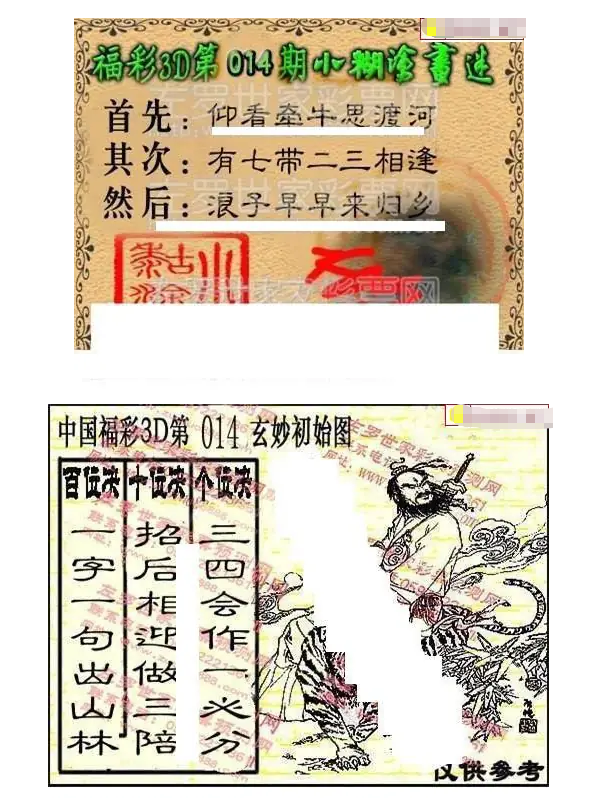 福彩3D第014期小糊涂画迷
首先：仰看牵牛思渡河
其次：有七带二三相逢
然后：浪子早早来归乡
左罗世家彩票网
中国福彩3D第014玄妙初始图
百位决
十位决
个位决
一字一句出山林
招后相迎做三陪
三四会作一必分
仅供参考